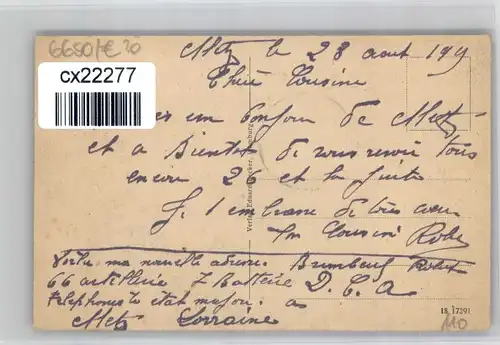 6650/€ 20
cx22277
Metz le 28 aout 191
Chère Cousine
un bonjour de Metz
et a Bientot de vous revoir tous
encore 26 et la fuite
Je t embrasse de tous cœur
Ton Cousin Robe
Voila ma nouvelle adresse Robert
66 artillerie 7 Batterie D. C. A
telephoniste etat major
Metz Lorraine
18 17291
110